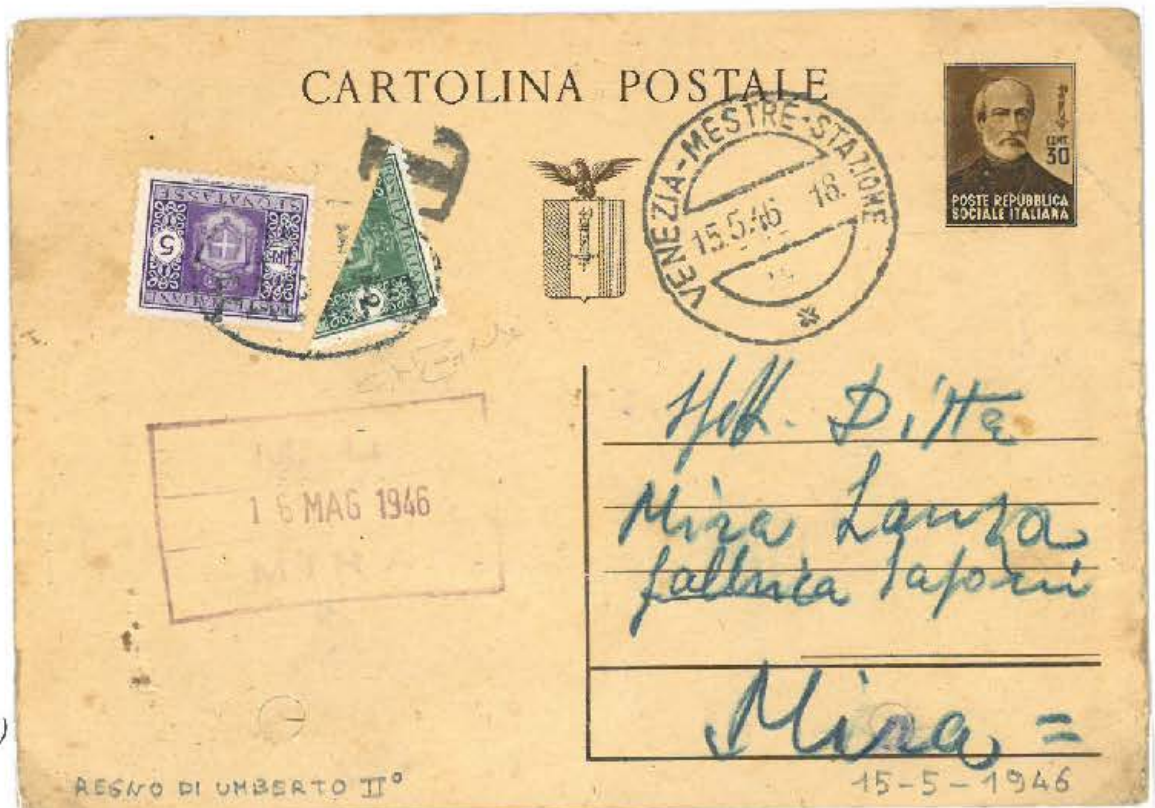 CARTOLINA POSTALE
CENT.
30
POSTE REPUBBLICA
SOCIALE ITALIANA
VENEZIA-MESTRE-STAZIONE
15.5.46 18.
T
SEGNATASSE
5
LIRE
2
16 MAG 1946
MIR
Spett. Ditta
Mira Lanza
fabbrica Saponi
Mira =
REGNO DI UMBERTO IIº
15-5-1946